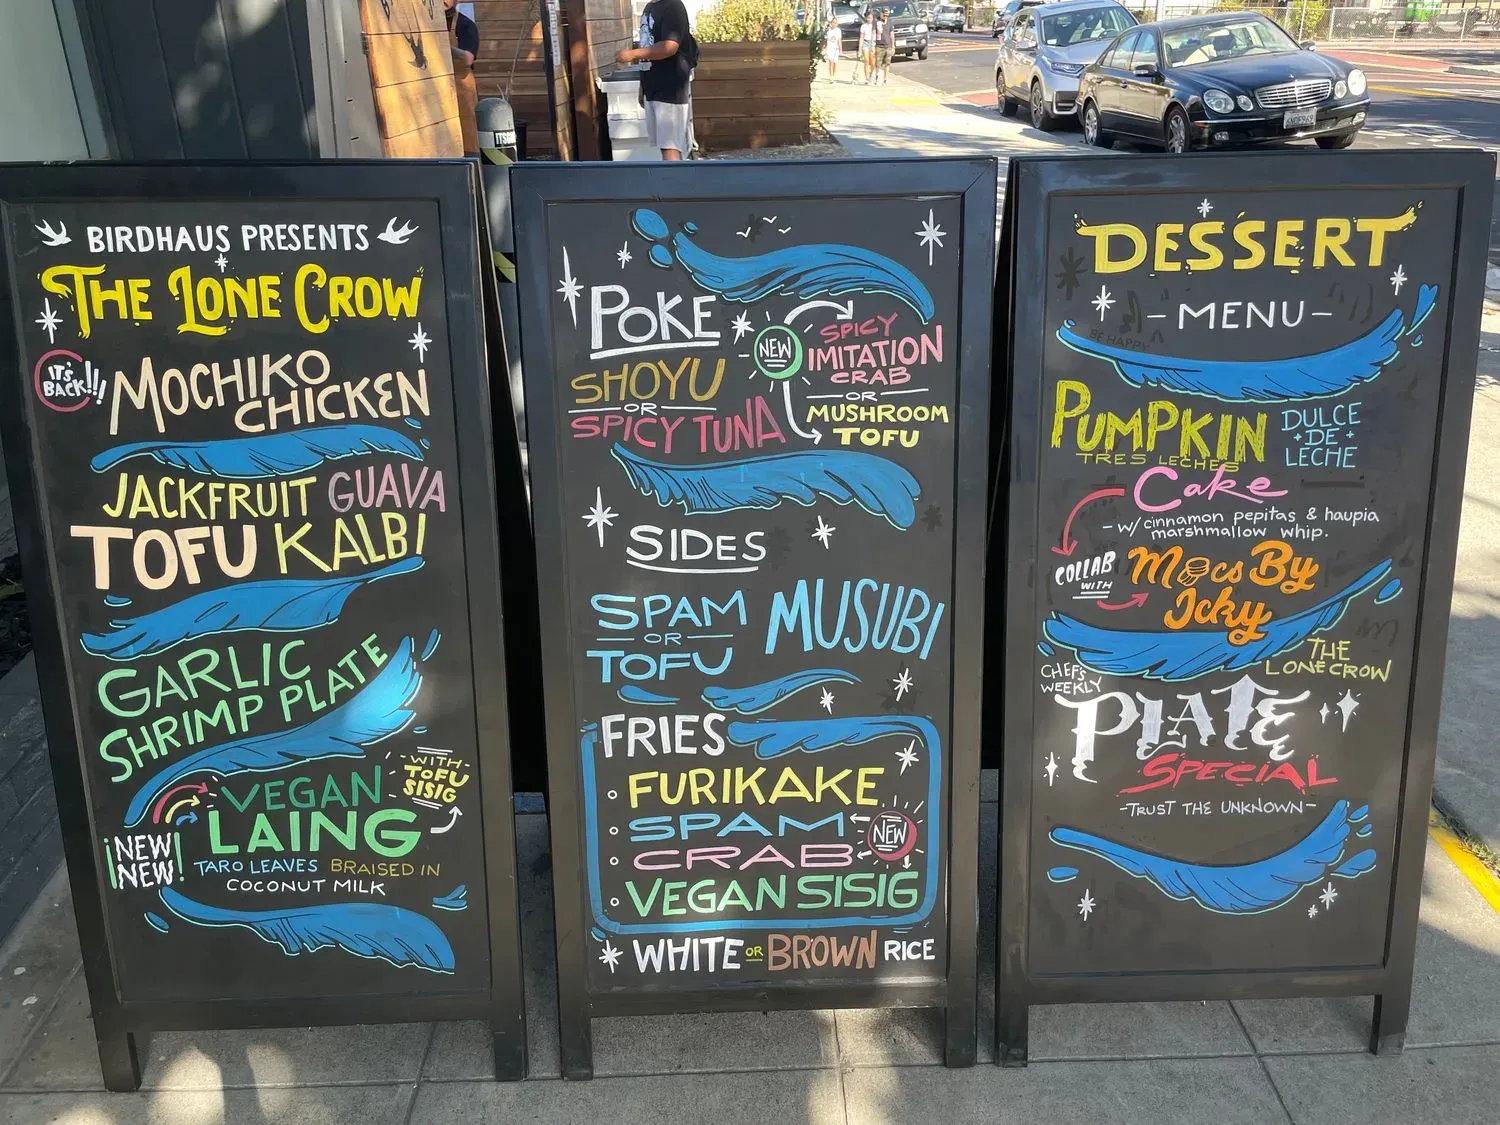 BIRDHAUS PRESENTS
THE LONE CROW
IT'S BACK!!!
MOCHIKO
CHICKEN
JACKFRUIT GUAVA
TOFU KALBI
GARLIC
SHRIMP PLATE
VEGAN
LAING
-WITH-
TOFU
SISIG
¡NEW NEW!
TARO LEAVES BRAISED IN
COCONUT MILK
POKE
SHOYU
OR
SPICY TUNA
NEW
SPICY
IMITATION
CRAB
OR
MUSHROOM
TOFU
SIDES
SPAM
OR
TOFU
MUSUBI
FRIES
FURIKAKE
SPAM
CRAB
NEW
VEGAN SISIG
WHITE OR BROWN RICE
DESSERT
-MENU-
BE HAPPY
PUMPKIN
TRES LECHES
DULCE
DE
LECHE
Cake
- w/ cinnamon pepitas & haupia
marshmallow whip.
COLLAB
WITH
Mocs By
Icky
THE
LONE CROW
CHEF'S
WEEKLY
PLATE
SPECIAL
-TRUST THE UNKNOWN-